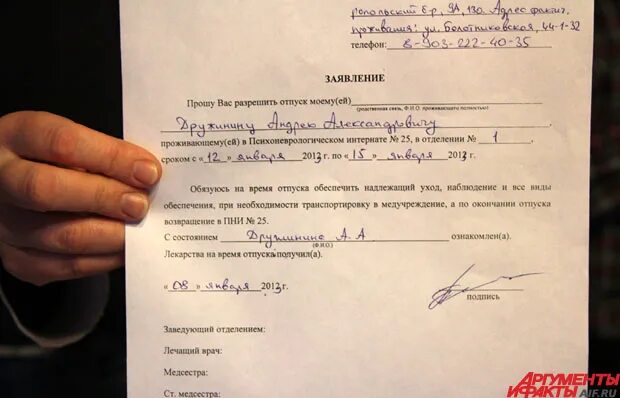 ропольский б-р, 9А, 130. Адрес фактич.
проживания: ул. Болотниковская, 44-1-32
телефон: 8-903-222-40-35
ЗАЯВЛЕНИЕ
Прошу Вас разрешить отпуск моему(ей)
(родственная связь, Ф.И.О. проживающего полностью)
Дружинину Андрею Александровичу
проживающему(ей) в Психоневрологическом интернате № 25, в отделении № 1
сроком с « 12 » января 2013 г. по « 15 » января 2013 г.
Обязуюсь на время отпуска обеспечить надлежащий уход, наблюдение и все виды
обеспечения, при необходимости транспортировку в медучреждение, а по окончании отпуска
возвращение в ПНИ № 25.
С состоянием Дружинина А.А ознакомлен(а).
(Ф.И.О.)
Лекарства на время отпуска получил(а).
« 08 » января 2013 г.
подпись
Заведующий отделением:
Лечащий врач:
Медсестра:
Ст. медсестра:
АРГУМЕНТЫ
И ФАКТЫ AIF.RU